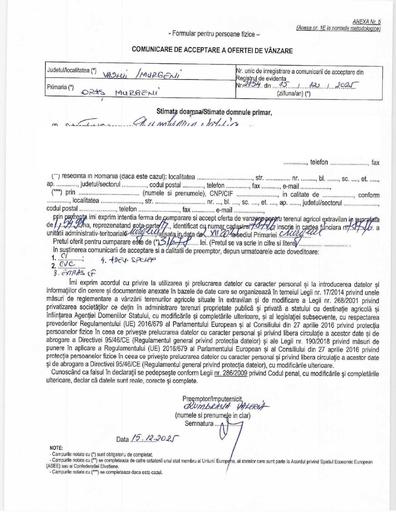 ANEXA Nr. 5
(Anexa nr. 1E la normele metodologice)
- Formular pentru persoane fizice –
COMUNICARE DE ACCEPTARE A OFERTEI DE VÂNZARE
Judeţul/localitatea (*) VASLUI / MURGENI
Primăria (*) ORAŞ MURGENI
Nr. unic de înregistrare a comunicării de acceptare din
Registrul de evidenta
din 15 / 12 / 2025
(zi/luna/an) (*)
Stimata doamna/Stimate domnule primar,
, telefon , fax
(**) resedinta in Romania (daca este cazul): localitatea , str. nr. , bl. , sc. , et. ,
ap. , judeţul/sectorul , codul postal , telefon , fax , e-mail ,
(***) prin (numele si prenumele), CNP/CIF , in calitate de , conform
, localitatea , str. nr. , bl. , sc. , et. , ap. , judeţul/sectorul
codul postal , telefon , fax , e-mail
prin prezenta imi exprim intentia ferma de cumparare si accept oferta de vanzare pentru terenul agricol extravilan in suprafata
de , reprezentand cota-parte , identificat cu numar cadastral , inscris in cartea funciara a
unitatii administrativ-teritoriale , afisata in data de la sediul Primariei
Pretul oferit pentru cumparare este de (*) lei. (Pretul se va scrie in cifre si litere)
In sustinerea comunicarii de acceptare si a calitatii de preemptor, depun urmatoarele acte doveditoare:
1. CI
2. CVC
3. EXTRAS CF
Imi exprim acordul cu privire la utilizarea şi prelucrarea datelor cu caracter personal şi la introducerea datelor şi
informaţiilor din cerere şi documentele anexate în bazele de date care se organizează în temeiul Legii nr. 17/2014 privind unele
măsuri de reglementare a vânzării terenurilor agricole situate în extravilan şi de modificare a Legii nr. 268/2001 privind
privatizarea societăţilor ce deţin în administrare terenuri proprietate publică şi privată a statului cu destinaţie agricolă şi
înfiinţarea Agenţiei Domeniilor Statului, cu modificările şi completările ulterioare, şi al legislaţiei subsecvente, cu respectarea
prevederilor Regulamentului (UE) 2016/679 al Parlamentului European şi al Consiliului din 27 aprilie 2016 privind protecţia
persoanelor fizice în ceea ce priveşte prelucrarea datelor cu caracter personal şi privind libera circulaţie a acestor date şi de
abrogare a Directivei 95/46/CE (Regulamentul general privind protecţia datelor) şi ale Legii nr. 190/2018 privind măsuri de
punere în aplicare a Regulamentului (UE) 2016/679 al Parlamentului European şi al Consiliului din 27 aprilie 2016 privind
protecţia persoanelor fizice în ceea ce priveşte prelucrarea datelor cu caracter personal şi privind libera circulaţie a acestor date şi
de abrogare a Directivei 95/46/CE (Regulamentul general privind protecţia datelor), cu modificările ulterioare.
Cunoscând ca falsul în declaraţii se pedepseşte conform Legii nr. 286/2009 privind Codul penal, cu modificările şi completările
ulterioare, declar că datele sunt reale, corecte şi complete.
Preemptor/Imputernicit,
(numele si prenumele in clar)
Semnatura
Data 15.12.2025
NOTE:
- Campurile notate cu (*) sunt obligatoriu de completat.
- Campurile notate cu (**) se completeaza de catre cetatenii unui stat membru al Uniunii Europene, ai statelor care sunt parte la Acordul privind Spatiul Economic European
(ASEE) sau ai Confederatiei Elvetiene.
- Campurile notate cu (***) se completeaza daca este cazul.